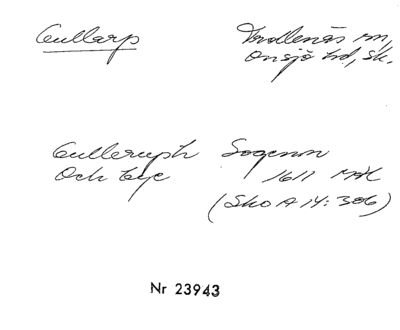 Gullarp Trollenäs sn,
Onsjö hd, Sk.
Gulleruph Sogenn
Och bye 1611 MHK
(Sko A 14: 306)
Nr 23943